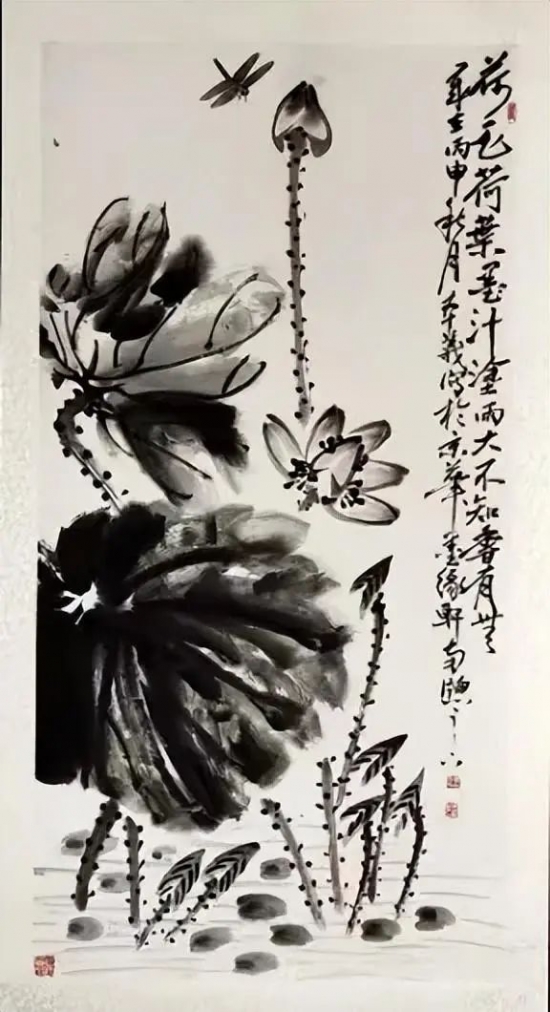 荷花荷葉墨汁塗雨大不知香有無
歲在丙申秋月本義寫於京華墨緣軒南牕之下